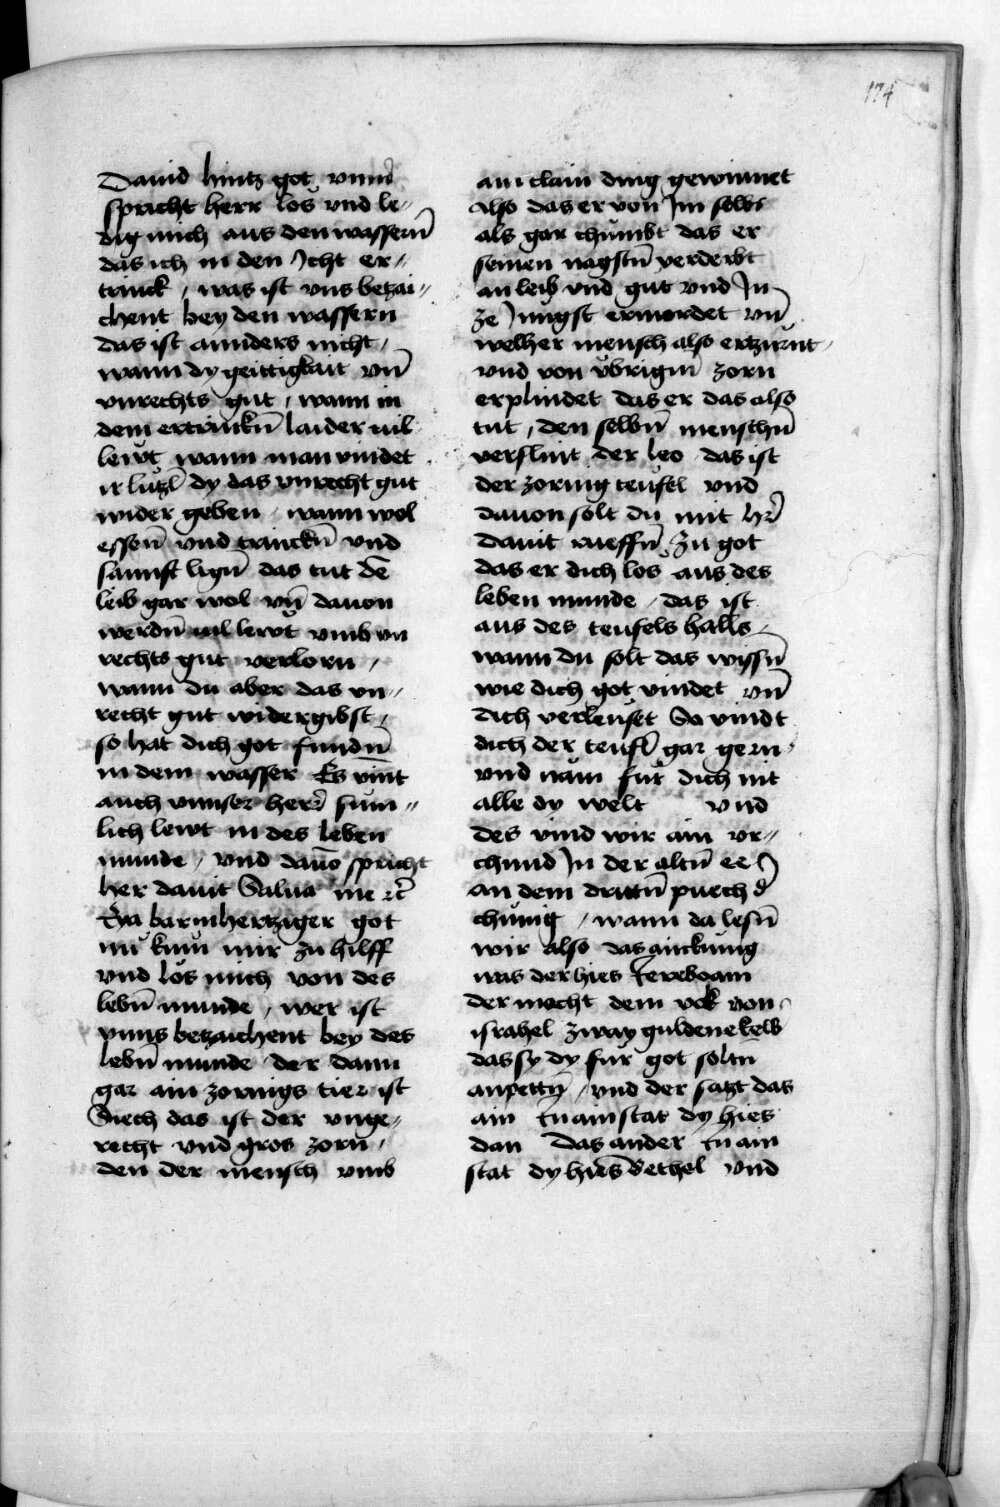 174
Dauid hintz got vnnd
spricht herr los vnd le-
dig mich aus den wassern̄
das ich in den Icht er-
trinck / was ist vns betzai-
chent bey den wassern
das ist annders nicht /
wann dy geittigkait vn̄
vnrechts gut / wann in
dem ertrinckn̄ laider vil
lewt wann man vindet
ir lützl dy das vnrecht gut
wider geben / wann wol
essen̄ vnd trinckn̄ vnd
sannft lign̄ das tut dē
leib gar wol vn̄ dauon
werdn̄ vil lewt vmb vn
rechts gut verlorn /
wann du aber das vn-
recht gut widergibst /
so hat dich got fundn̄
in dem wasser Es vint
auch vnnser herr sum-
lich lewt in des leben
munde / vnd dauō spricht
her dauit Salua me etc
Eya barmhertziger got
nu kum mir zu hilff
vnd lös mich von des
lebn̄ munde / wer ist
vnns betzaichent bey des
lebn̄ munde der dann
gar ain zornigs tier ist
Siech das ist der vnge-
recht vnd gros zorn /
den der mensch vmb
ain clain ding gewinnet
Also das er von Im selbs
als gar chumbt das er
seinen nagstn̄ verderbt
an leib vnd gut vnd In
ze Iungst ermordet vn̄
welher mensch also ertzürnt
vnd von übrigm̄ zorn
erplindet das er das also
tut / den selbn̄ menschn̄
verslint der leo das ist
der zornig teufel vnd
dauon solt du mit hr̄
dauit rueffn̄ zu got
das er dich los aus des
leben munde / das ist
aus des teufels halls
wann du solt das wissn̄
wie dich got vindet vn̄
dich verleuset So vindt
dich der teufl gar gern
vnd nām für dich nit
alle dy welt vnd
des vind wir ain vr-
chund In der altn̄ ee
an dem drittn̄ puech d̄
chünig / wann da lesn̄
wir also das ain kunig
was der hies Jeroboam
der macht dem volk von
israhel zway guldene kelb
das sy dy für got soltn̄
anpettn̄ / vnd der satzt das
ain In ain stat dy hies
dan Das ander In ain
stat dy hies Bethel vnd